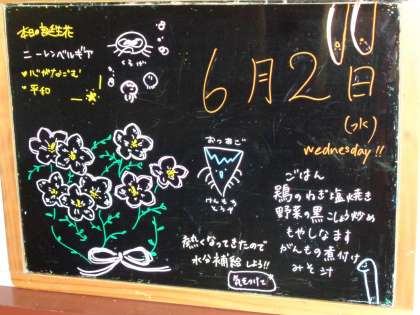 本日の誕生花
ニーレンベルギア
♥心がなごむ
♥平和
くらげ
6月2日
(水)
wednesday!!
おっあご
けんさき
とうろ
ごはん
鶏のねぎ塩焼き
野菜の黒こしょう炒め
もやしなます
がんもの煮付け
みそ汁
熱くなってきたので
水分補給しよう!!